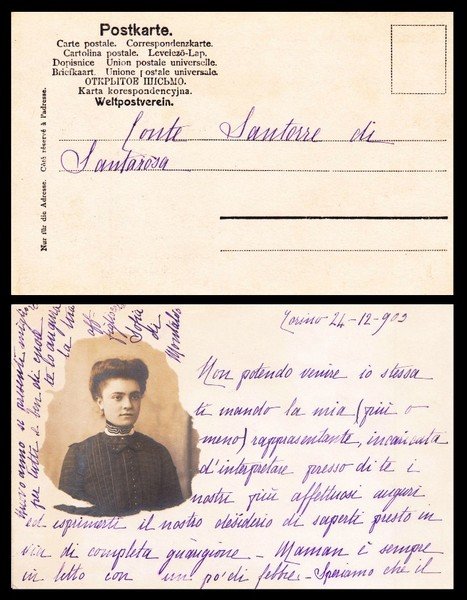 Postkarte.
Carte postale. Correspondenzkarte.
Cartolina postale. Levelező-Lap.
Dopisnice Union postale universelle.
Briefkaart. Unione postale universale.
ОТКРЫТОЕ ПИСЬМО.
Karta korespondencyjna.
Weltpostverein.
Nur für die Adresse. Côté réservé à l'adresse.
Conte Santorre di
Santarosa
Torino 24-12-903
Non potendo venire io stessa
ti mando la mia (più o
meno) rappresentante, incaricata
d'interpretare presso di te i
nostri più affettuosi auguri
ed esprimerti il nostro desiderio di saperti presto in
via di completa guarigione - Maman è sempre
in letto con un po' di febbre. Speriamo che il
nuovo anno si presenti
per tutti e ben di cuore
te lo augura
la tua
aff
Sofia
di